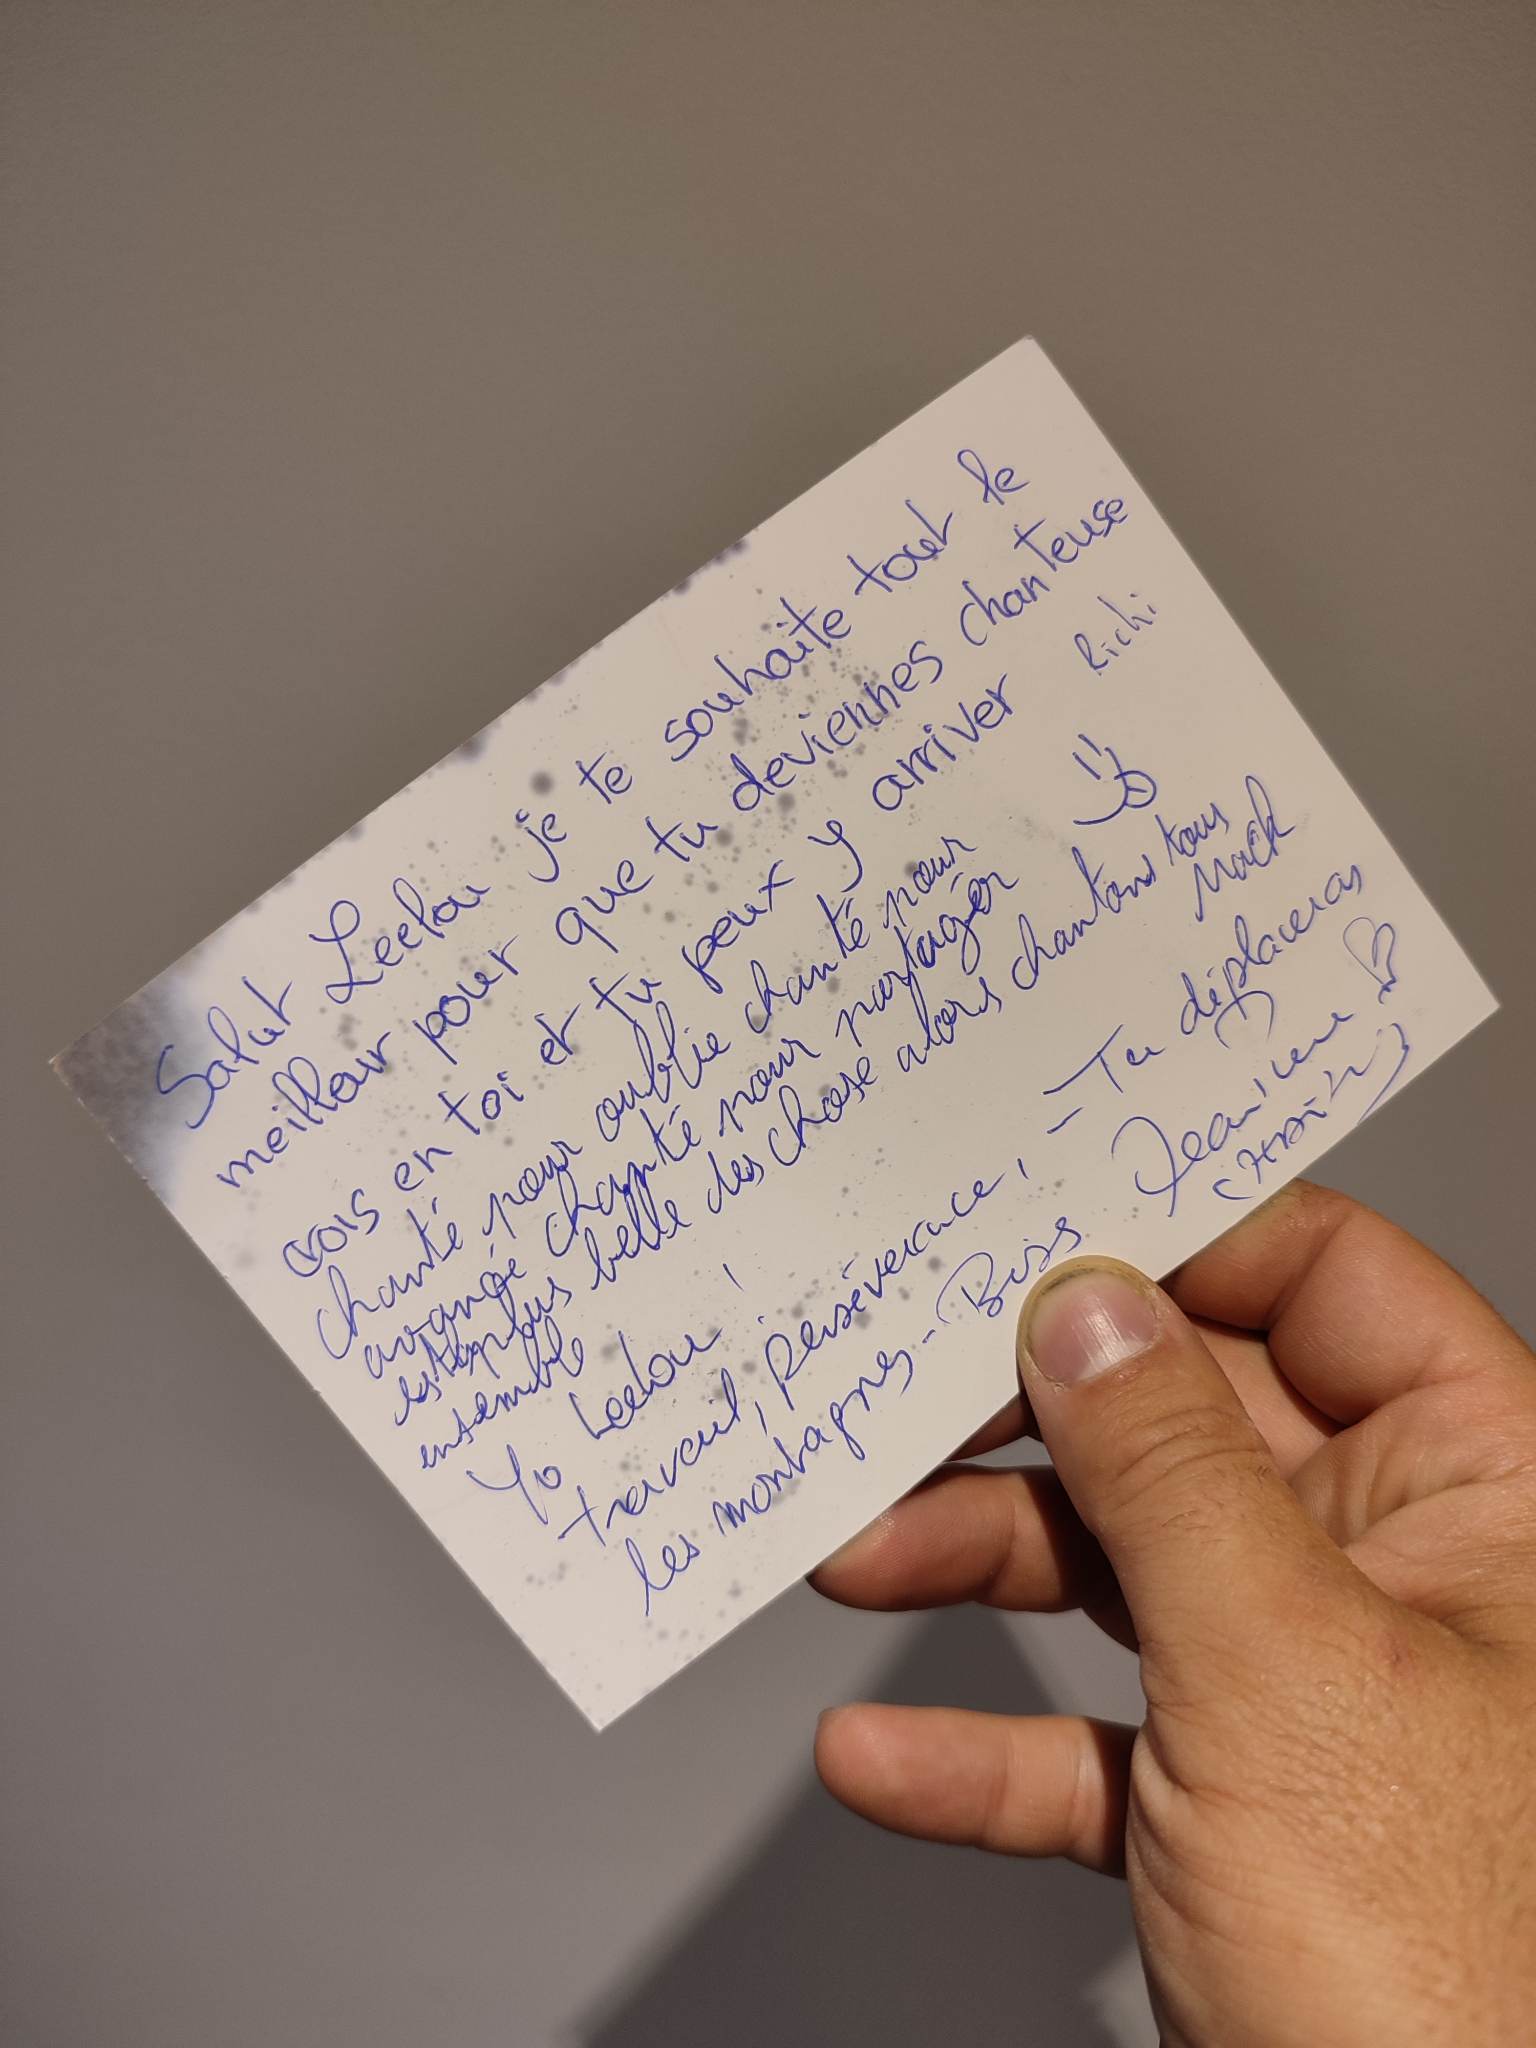 Salut Leelou je te souhaite tout le
meilleur pour que tu deviennes chanteuse
crois en toi et tu peux y arriver Richi
chanté pour oublie chanté pour
avancé chanté pour partagér
les plus belle des chose alors chantons tous
ensemble Mack
Yo Leelou !
travail, persévérance, - Tu déplaceras
les montagnes - Biss Jeanine